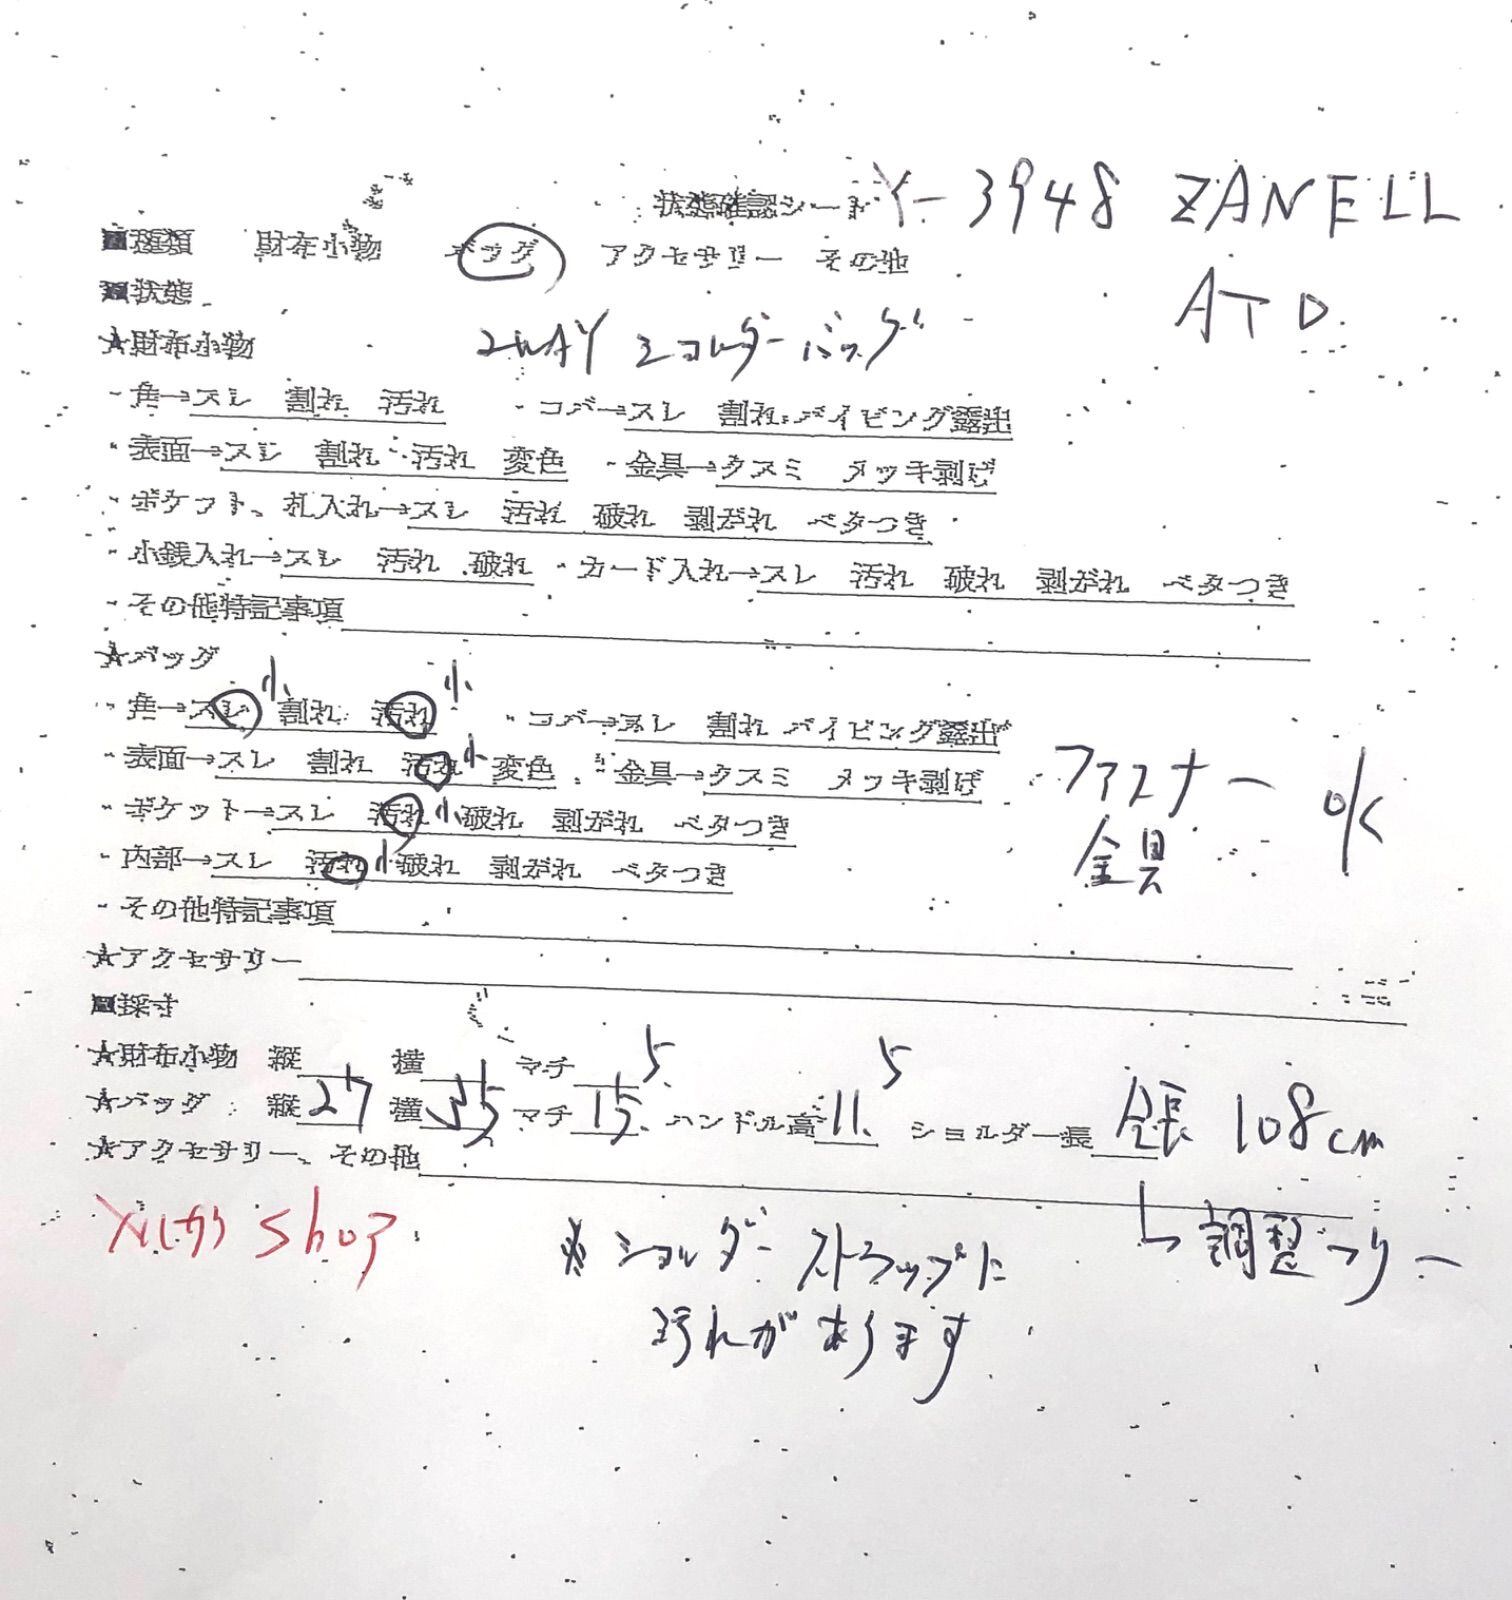 状態確認シート Y-3948 ZANELL
ATO
■種類 財布小物 バッグ アクセサリー その他
■状態
★財布小物 2WAY ショルダーバッグ
・角→スレ 割れ 汚れ ・コバ→スレ 割れ パイピング露出
・表面→スレ 割れ 汚れ 変色 ・金具→クスミ メッキ剥げ
・ポケット、札入れ→スレ 汚れ 破れ 剥がれ ベタつき
・小銭入れ→スレ 汚れ 破れ ・カード入れ→スレ 汚れ 破れ 剥がれ ベタつき
・その他特記事項
★バッグ
・角→スレ 小 割れ 汚れ 小 ・コバ→スレ 割れ パイピング露出
・表面→スレ 割れ 汚れ 小 変色 ・金具→クスミ メッキ剥げ
ファスナー
金具 OK
・ポケット→スレ 汚れ 小 破れ 剥がれ ベタつき
・内部→スレ 汚れ 小 破れ 剥がれ ベタつき
・その他特記事項
★アクセサリー
■採寸
★財布小物 縦 横 マチ
★バッグ 縦 27 横 35 マチ 15.5 ハンドル高 11.5 ショルダー長 全長 108cm
↳調整フリー
★アクセサリー、その他
shop
※ショルダーストラップに
汚れがあります